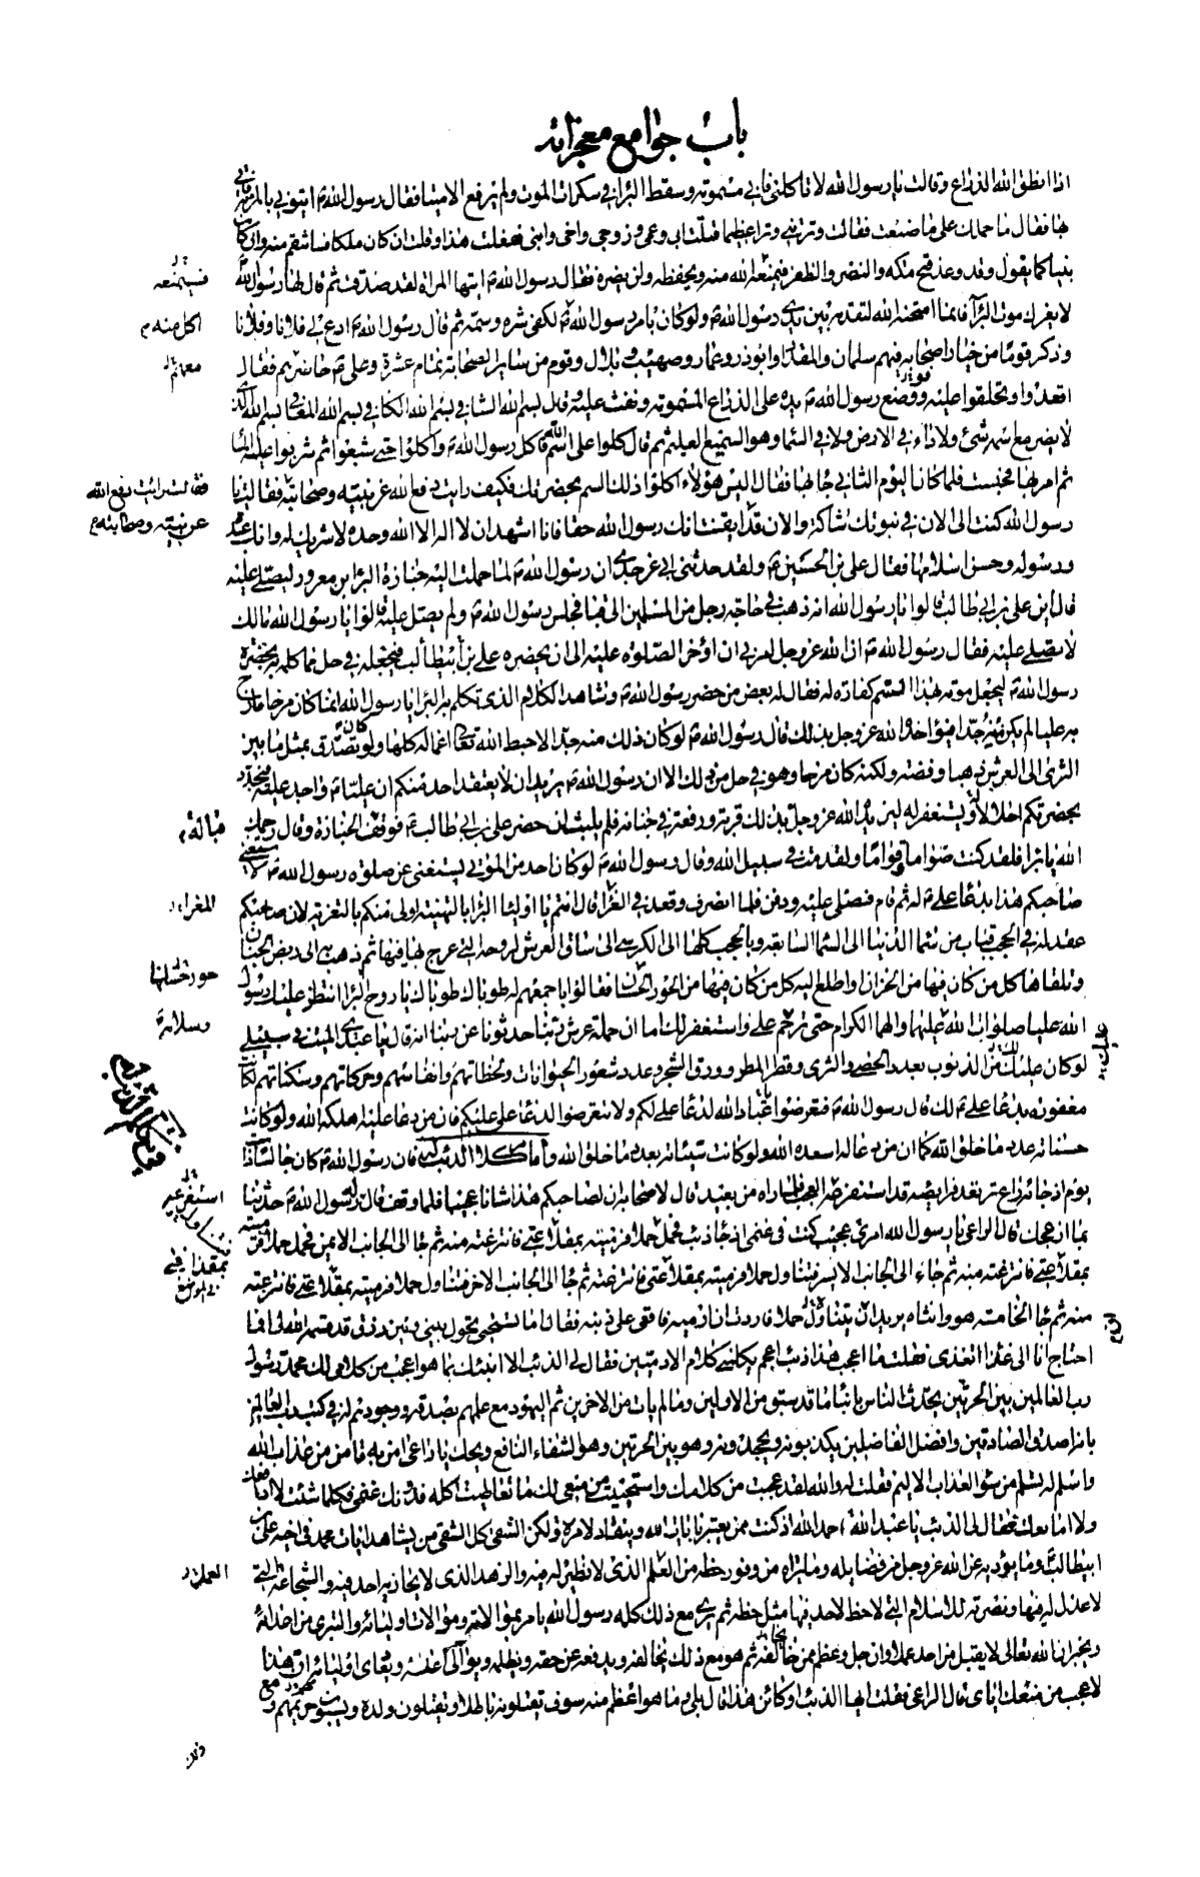 باب جوامع معجزاته
اذا انطق الله الذراع وقالت يا رسول الله لا تاكلني فاني مسمومة وسقط البرا في سكرات الموت ولم يرفع الا ميتا فقال رسول الله ايتوني بالمراة فاتي
بها فقال ما حملك على ما صنعت فقالت وترتني وترا عظيما قتلت ابي وعمي وزوجي واخي وابني ففعلت هذا وقلت ان كان ملكا فسانتقم منه وان كان
نبيا كما يقول وقد وعد فتح مكة والنصر والظفر فيمنعه الله منه ويحفظه ولن يضره فقال رسول الله ايتها المراة لقد صدقت ثم قال لها رسول الله
لا يغرك موت البرا فانما امتحنه الله لتقدمه بين يدي رسول الله ولو كان بامر رسول الله اكل لكفي شره وسمه ثم قال رسول الله ادع لي فلانا وفلانا
وذكر قوما من خيار اصحابه فيهم سلمان والمقداد وابو ذر وعمار وصهيب وبلال وقوم من ساير الصحابة تمام عشرة وعلي حاضرهم فقال
اقعدوا وتحلقوا عليه ووضع رسول الله يده على الذراع المسمومة ونفث عليه وقال بسم الله الشافي بسم الله الكافي بسم الله المعافي بسم الله الذي
لا يضر مع اسمه شئ ولا داء في الارض ولا في السما وهو السميع العليم ثم قال كلوا على اسم الله فاكل رسول الله واكلوا حتى شبعوا ثم شربوا عليه الما
ثم امر بها فحبست فلما كان اليوم الثاني جا بها فقال اليس هؤلاء اكلوا ذلك السم بحضرتك فكيف رايت دفع الله عن نبيه وصحابته فقالت يا
رسول الله كنت الى الان في نبوتك شاكة والان قد ايقنت انك رسول الله حقا فانا اشهد ان لا اله الا الله وحده لا شريك له وانك عبده
ورسوله وحسن اسلامها فقال علي بن الحسين ولقد حدثني ابي عن جدي ان رسول الله لما حملت اليه جنازة البرا بن معرور ليصلي عليه
قال اين علي بن ابي طالب قالوا يا رسول الله انه ذهب في حاجة رجل من المسلمين الى قبا فجلس رسول الله ولم يصل عليه قالوا يا رسول الله ما لك
لا تصلي عليه فقال رسول الله ان الله عز وجل امرني ان اؤخر الصلوة عليه الى ان يحضره علي بن ابيطالب فيجعله في حل مما كلمه به بحضرة
رسول الله ليجعل موته بهذا السم كفارة له فقال له بعض من حضر رسول الله وشاهد الكلام الذي تكلم به البرا يا رسول الله انما كان مزحا مازح
به عليا لم يكن منه جدا فيؤاخذه الله عز وجل بذلك قال رسول الله لو كان ذلك منه جدا لاحبط الله تعالى اعماله كلها ولو كان تصدق بمثل ما بين
الثرى الى العرش ذهبا وفضة ولكنه كان مزحا وهو في حل من ذلك الا ان رسول الله يريد ان لا يعتقد احد منكم ان عليا واجد عليه فيجدد
بحضرتكم احلالا ويستغفر له ليزيده الله عز وجل بذلك قربة ورفعة في جنانه فلم يلبث ان حضر علي بن ابي طالب فوقف قبالة الجنازة وقال رحمك
الله يا برا فلقد كنت صواما قواما ولقد مت في سبيل الله وقال رسول الله لو كان احد من الموتى يستغني عن صلوة رسول الله لاستغنى
صاحبكم هذا بدعا علي له ثم قام فصلى عليه ودفن فلما انصرف وقعد في العزا قال انتم يا اوليا البرا بالتهنية اولى منكم بالتعزية لان صاحبكم
عقد له في الحجب قباب من سما الدنيا الى السما السابعة وبالحجب كلها الى الكرسي الى ساق العرش لروحه التي عرج بها فيها ثم ذهب بها الى ربض الجنان
وتلقاها كل من كان فيها من الخزان واطلع اليه كل من كان فيها من الحور الحسان فقالوا باجمعهم له طوباك طوباك يا روح البرا انتظر عليك رسول
الله عليا صلوات الله عليهما والهما الكرام حتى ترحم علي واستغفر لك اما ان حملة عرش ربنا حدثونا عن ربنا انه قال يا عبدي الميت في سبيلي
لو كان عليك من الذنوب بعدد الحصى والثرى وقطر المطر وورق الشجر وعدد شعور الحيوانات ولحظاتهم وانفاسهم وحركاتهم وسكناتهم لكانت
مغفورة بدعا علي لك قال رسول الله فتعرضوا عباد الله لدعا علي لكم ولا تتعرضوا لدعا علي عليكم فان من دعا عليه اهلكه الله ولو كانت
حسناته عدد ما خلق الله كما ان من دعا له اسعده الله ولو كانت سيئاته بعدد ما خلق الله واما كلام الذئب له فان رسول الله كان جالسا ذات
يوم اذ جائه راع ترتعد فرايصه قد استفزعه العجب فلما راه من بعيد قال لاصحابه ان لصاحبكم هذا شانا عجيبا فلما وقف قال له رسول الله حدثنا
بما ازعجك قال الراعي يا رسول الله امر عجيب كنت في غنمي اذ جا ذئب فحمل حملا فرميته بمقلاعتي فانتزعته منه ثم جا الى الجانب الايمن فحمل حملا فرميته
بمقلاعتي فانتزعته منه ثم جاء الى الجانب الايسر فتناول حملا فرميته بمقلاعتي فانتزعته ثم جا الى الجانب الاخر فتناول حملا فرميته بمقلاعتي فانتزعته
منه ثم جا الخامسة هو وانثاه يريد ان يتناول حملا فاردت ان ارميه فاقعى على ذنبه فقال اما تستحيي تحول بيني وبين رزق قد قسمه الله لي افما
احتاج انا الى غذا اتغذى به فقلت ما اعجب هذا ذئب اعجم يكلمني كلام الادميين فقال لي الذئب الا انبئك بما هو اعجب من كلامي لك محمد رسول
رب العالمين بين الحرتين يحدث الناس بانبا ما قد سبق من الاولين وما لم يات من الاخرين ثم اليهود مع علمهم بصدقه ووجودهم له في كتب رب العالمين
بانه اصدق الصادقين وافضل الفاضلين يكذبونه ويجحدونه وهو بين الحرتين وهو الشفاء النافع ويحك يا راعي امن به تامن من عذاب الله
واسلم له تسلم من سوء العذاب الاليم فقلت له والله لقد عجبت من كلامك واستحييت من منعي لك ما تعاطيت اكله فدونك غنمي فكل ما شئت لا ادافعك
ولا امانعك فقال لي الذئب يا عبد الله احمد الله اذ كنت ممن يعتبر بايات الله وينقاد لامره ولكن الشقي كل الشقي من يشاهد ايات محمد في اخيه علي بن
ابيطالب وما يؤديه عن الله عز وجل من فضايله وما يراه من وفور حظه من العلم الذي لا نظير له فيه والزهد الذي لا يحاذيه احد فيه والشجاعة التي
لا عدل له فيها ونصرته للاسلام التي لا حظ لاحد فيها مثل حظه ثم يرى مع ذلك كله رسول الله يامر بموالاته وموالات اوليائه والتبري من اعدائه
ويخبر ان الله تعالى لا يقبل من احد عملا وان جل وعظم ممن يخالفه ثم هو مع ذلك يخالفه ويدفعه عن حقه ويظلمه ويوالي اعدائه ويعادي اوليائه ان هذا
لاعجب من منعك اياي قال الراعي فقلت ايها الذئب او كائن هذا قال بلى وما هو اعظم منه سوف يقتلونه باطلا ويقتلون ولده ويسبون حريمهم ومع
فسيمنعه
اكل منه
معهم
فقالت رايت دفع الله
عن نبيه وصحابته
قبالة
العزاء
حور حسانها
وسلامه
عليك
استفزعه
بمقلاعتي
في المواضع
العلم
وذلك